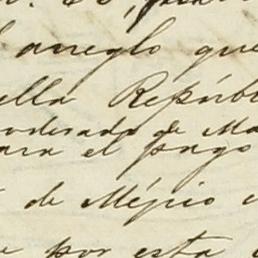 arreglo que
ella Repúbl
oderado de Ma
para el pago
de Méjico
por esta